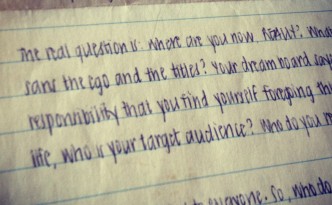 The real question is: where are you now REALLY? What
sans the ego and the titles? Your dream board says
responsibility that you find yourself foregoing
life, who is your target audience? Who do you
to everyone. So, who do